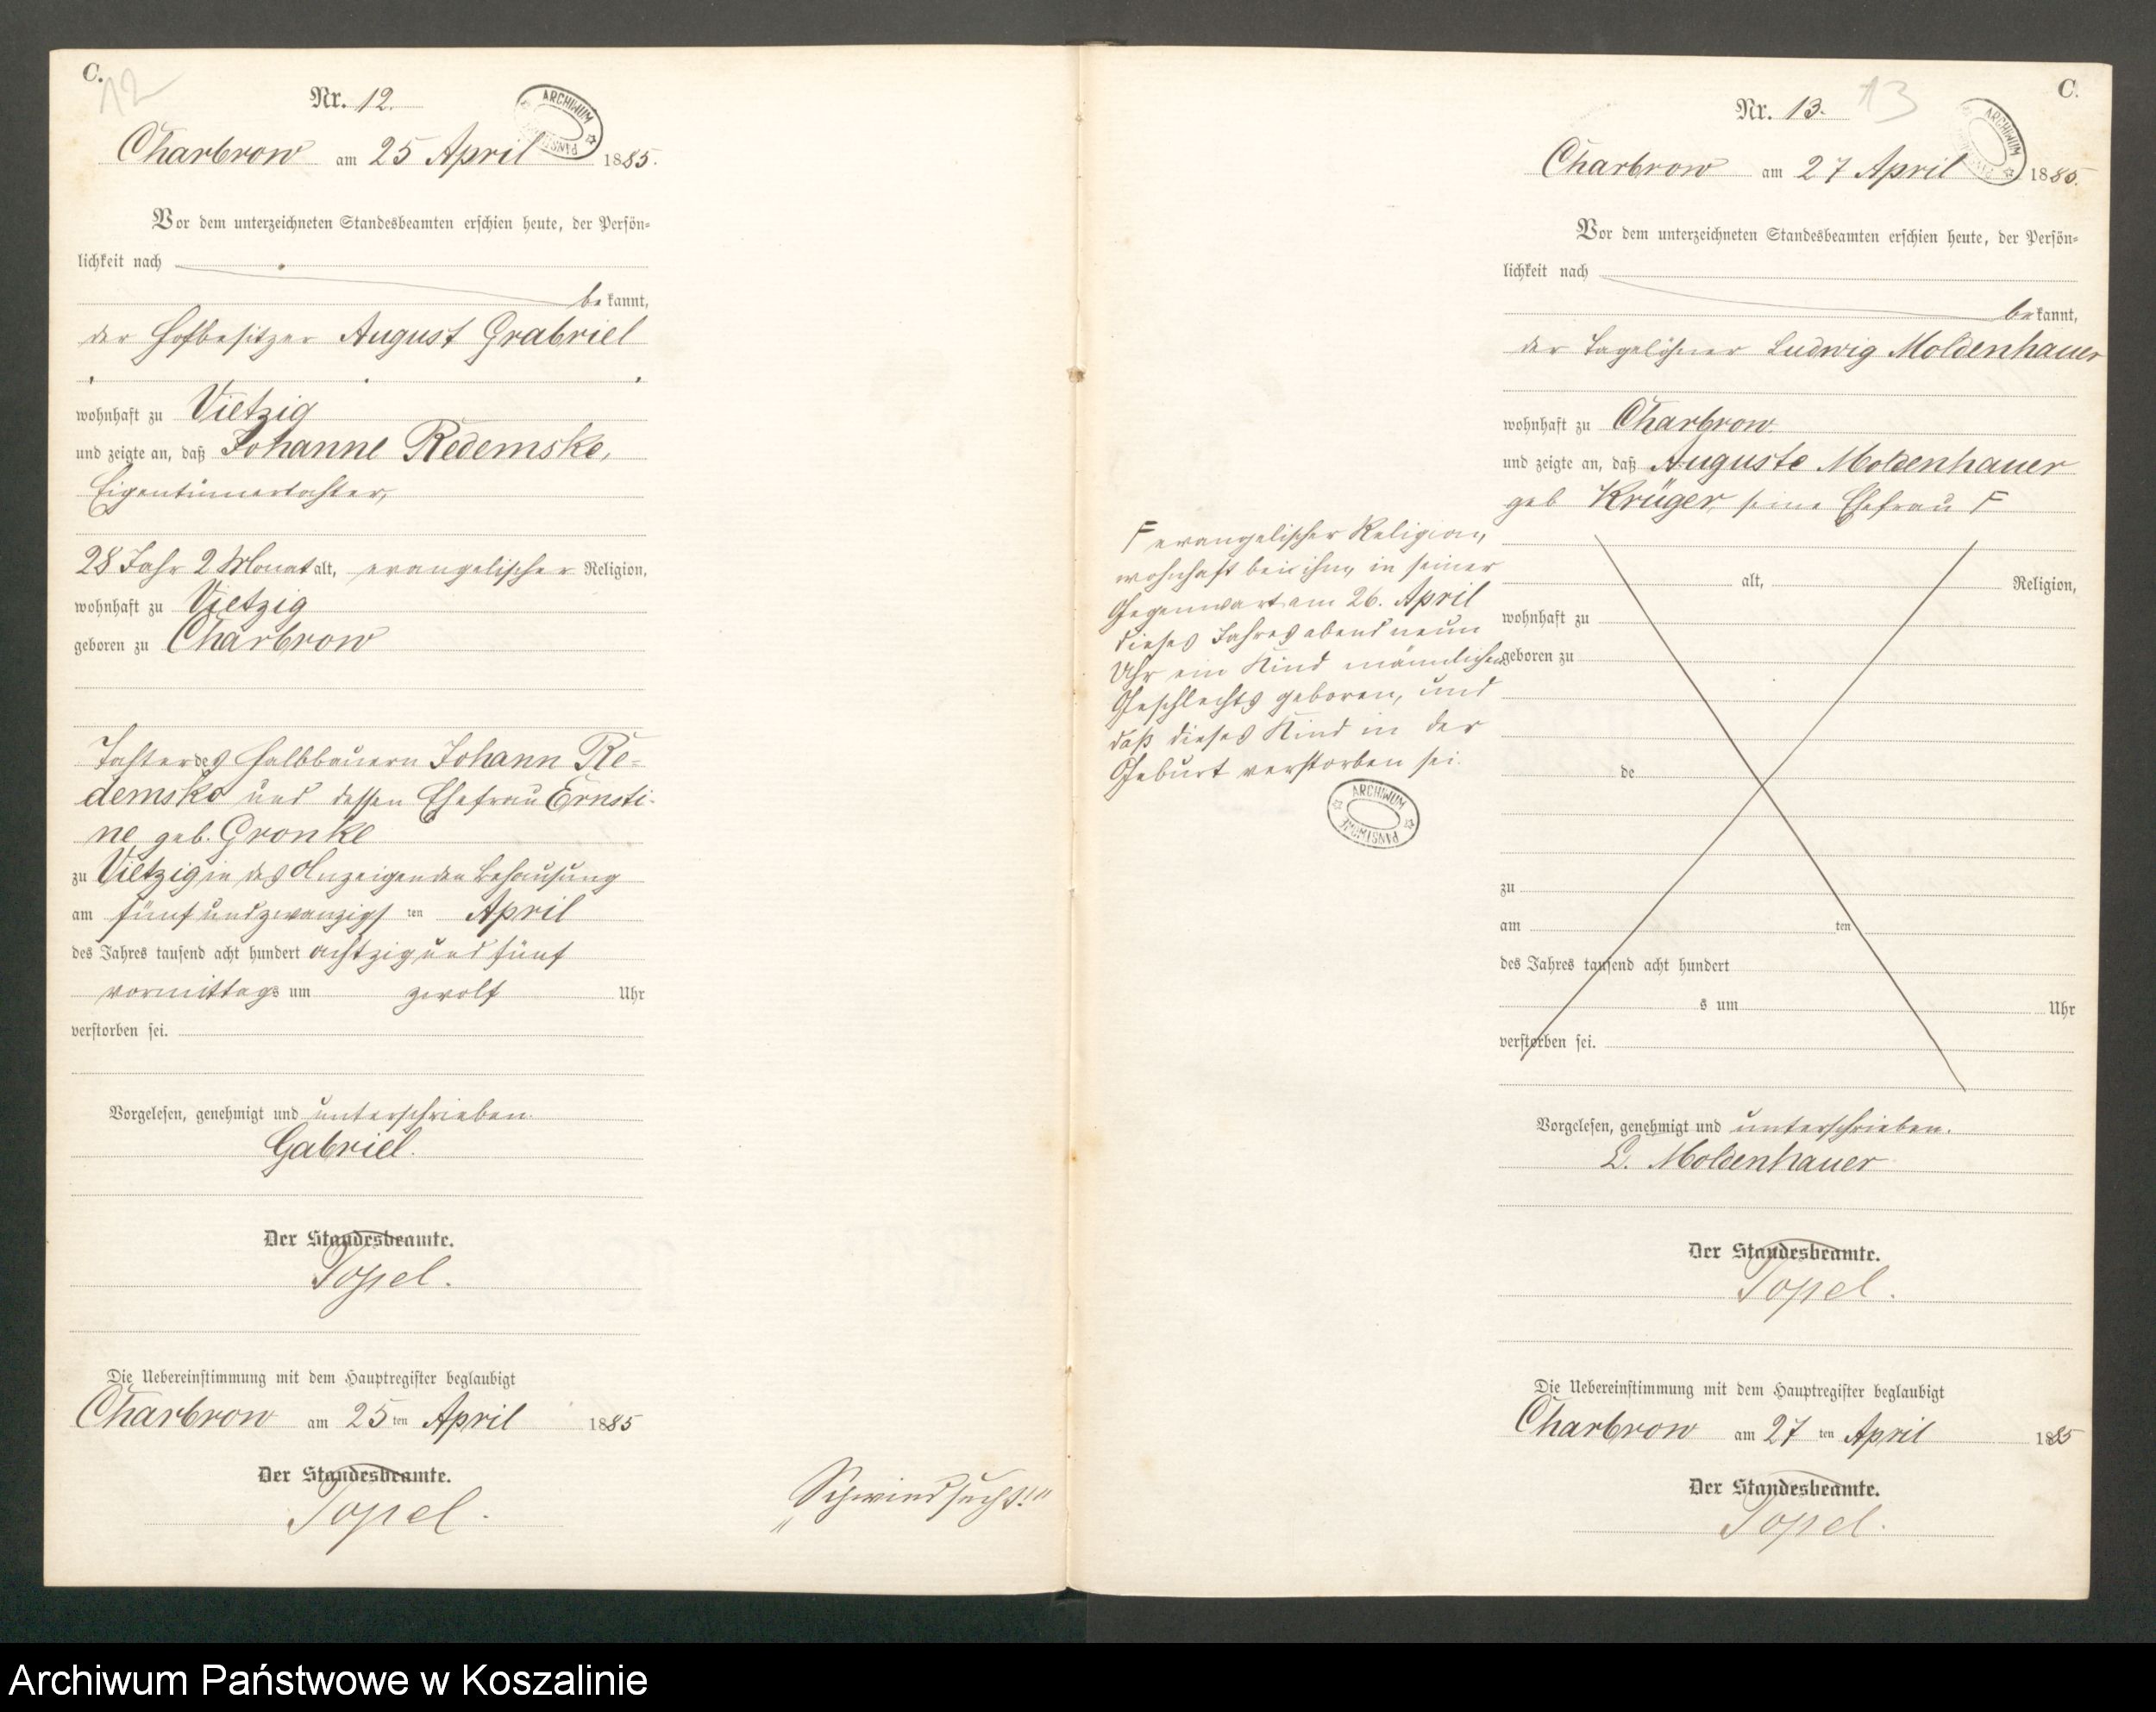 C.
12
Nr. 12.
ARCHIWUM PAŃSTWOWE
Charbrow am 25 April 1885.
Vor dem unterzeichneten Standesbeamten erschien heute, der Persön=
lichkeit nach
bekannt,
der Hofbesitzer August Grabriel
wohnhaft zu Vietzig
und zeigte an, daß Johanne Redemske,
Eigentümertochter,
28 Jahr 2 Monat alt, evangelischer Religion,
wohnhaft zu Vietzig
geboren zu Charbrow
Tochter des Halbbauern Johann Re=
demske und dessen Ehefrau Ernsti-
ne geb. Gronke
zu Vietzig in des Anzeigenden Behausung
am fünfundzwanzigsten April
des Jahres tausend acht hundert achtzig und fünf
vormittags um zwolf Uhr
verstorben sei.
Vorgelesen, genehmigt und unterschrieben.
Gabriel.
Der Standesbeamte.
Topel.
Die Uebereinstimmung mit dem Hauptregister beglaubigt
Charbrow am 25ten April 1885
Der Standesbeamte.
Topel.
„Schwindsucht!"
C.
13
Nr. 13.
ARCHIWUM PAŃSTWOWE
Charbrow am 27 April 1885.
Vor dem unterzeichneten Standesbeamten erschien heute, der Persön=
lichkeit nach
bekannt,
der Tagelöhner Ludwig Moldenhauer
wohnhaft zu Charbrow.
und zeigte an, daß Auguste Moldenhauer
geb Krüger, seine Ehefrau F
F evangelischer Religion,
wohnhaft bei ihm, in seiner
Gegenwart am 26. April
dieses Jahres abend neun
Uhr ein Kind männlichen
Geschlechts geboren, und
daß dieses Kind in der
Geburt verstorben sei.
ARCHIWUM PAŃSTWOWE
alt, Religion,
wohnhaft zu
geboren zu
de
zu
am ten
des Jahres tausend acht hundert
s um Uhr
verstorben sei.
Vorgelesen, genehmigt und unterschrieben.
L. Moldenhauer
Der Standesbeamte.
Topel.
Die Uebereinstimmung mit dem Hauptregister beglaubigt
Charbrow am 27 ten April 1885
Der Standesbeamte.
Topel.
Archiwum Państwowe w Koszalinie